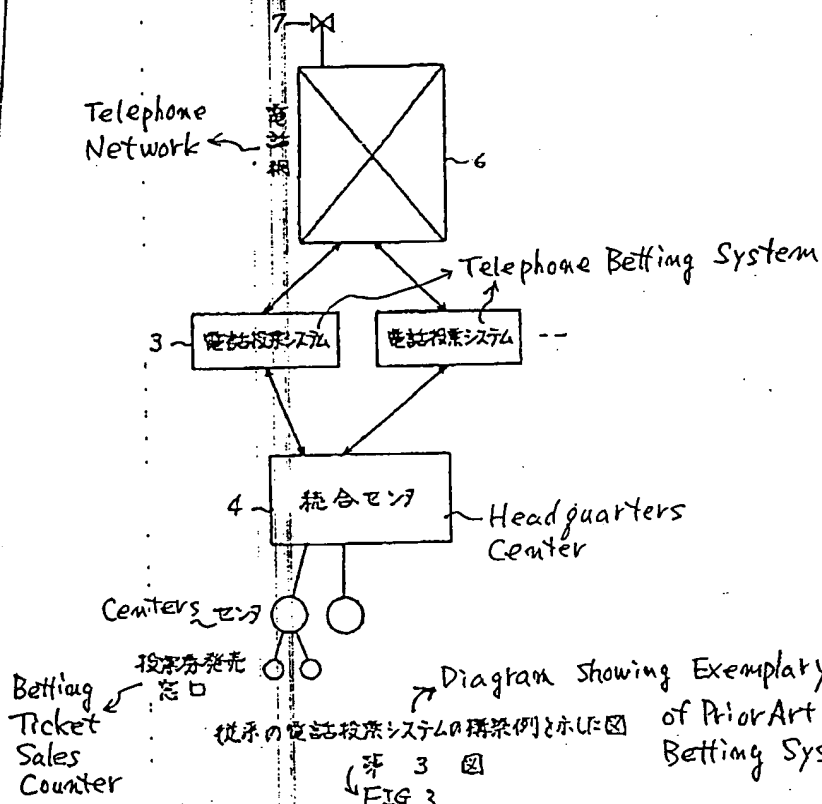 7
Telephone
Network
電話網
6
Telephone Betting System
3
電話投票システム
電話投票システム
4
統合センタ
Headquarters
Center
Centers
センタ
投票券発売
窓口
Betting
Ticket
Sales
Counter
Diagram Showing Exemplary
of Prior Art
Betting Sys
従来の電話投票システムの構築例を示した図
第 3 図
FIG 3